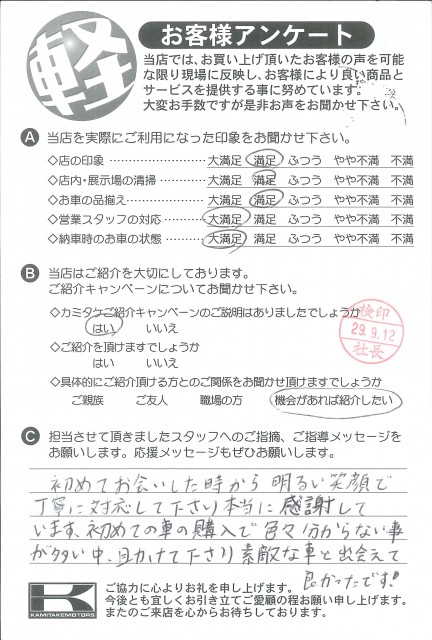 軽
お客様アンケート
当店では、お買い上げ頂いたお客様の声を可能
な限り現場に反映し、お客様により良い商品と
サービスを提供する事に努めています。
大変お手数ですが是非お声をお聞かせ下さい。
A 当店を実際にご利用になった印象をお聞かせ下さい。
◇店の印象 ………………… 大満足 満足 ふつう やや不満 不満
◇店内・展示場の清掃 ………… 大満足 満足 ふつう やや不満 不満
◇お車の品揃え ……………… 大満足 満足 ふつう やや不満 不満
◇営業スタッフの対応 ………… 大満足 満足 ふつう やや不満 不満
◇納車時のお車の状態 ………… 大満足 満足 ふつう やや不満 不満
B 当店はご紹介を大切にしております。
ご紹介キャンペーンについてお聞かせ下さい。
◇カミタケご紹介キャンペーンのご説明はありましたでしょうか
はい いいえ
◇ご紹介を頂けますでしょうか
はい いいえ
◇具体的にご紹介頂ける方とのご関係をお聞かせ頂けますでしょうか
ご親族 ご友人 職場の方 機会があれば紹介したい
検印
29.9.12
社長
C 担当させて頂きましたスタッフへのご指摘、ご指導メッセージを
お願いします。応援メッセージもぜひお願いします。
初めてお会いした時から 明るい笑顔で
丁寧に対応して下さり本当に 感謝して
います。初めての車の購入で色々分からない事
が多い中、助けて下さり 素敵な車と出会えて
良かったです!
KAMITAKEMOTORS
ご協力に心よりお礼を申し上げます。
今後とも宜しくお引き立てご愛顧の程お願い申し上げます。
またのご来店を心からお待ちしております。